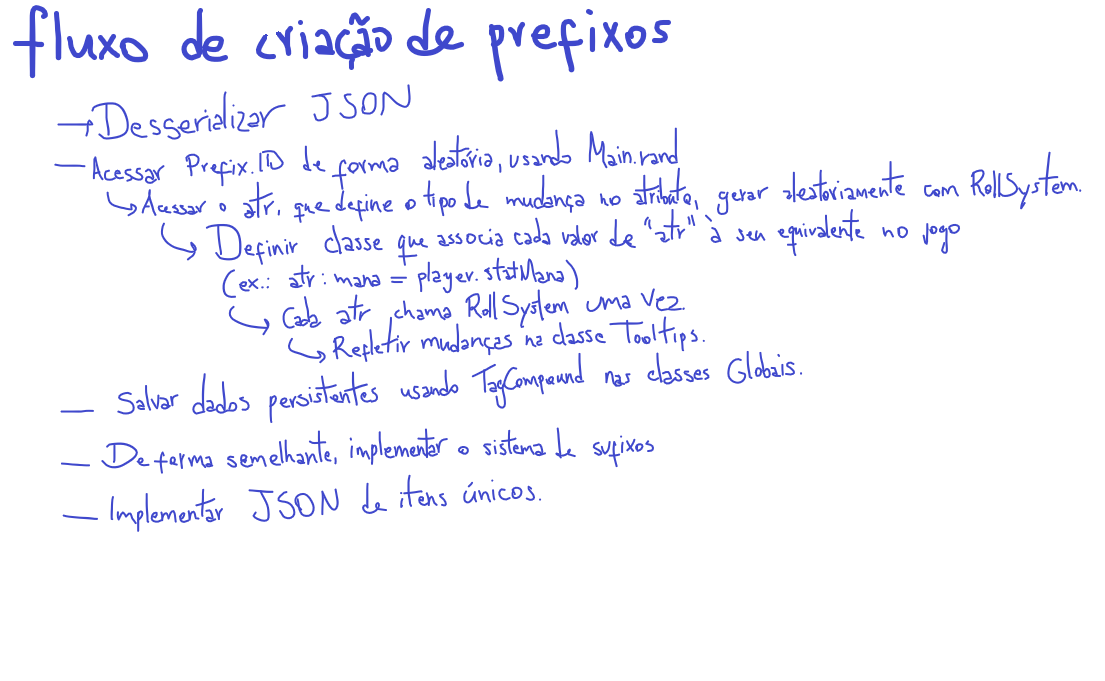 fluxo de criação de prefixos
→ Desserializar JSON
— Acessar Prefix.ID de forma aleatória, usando Main.rand
↳ Acessar o atr. que define o tipo de mudança no atributo, gerar aleatoriamente com RollSystem.
↳ Definir classe que associa cada valor de "atr" à seu equivalente no jogo
(ex.: atr: mana = player.statMana)
↳ Cada atr chama RollSystem uma vez.
↳ Refletir mudanças na classe Tooltips.
— Salvar dados persistentes usando TagCompound nas classes Globais.
— De forma semelhante, implementar o sistema de sufixos
— Implementar JSON de itens únicos.